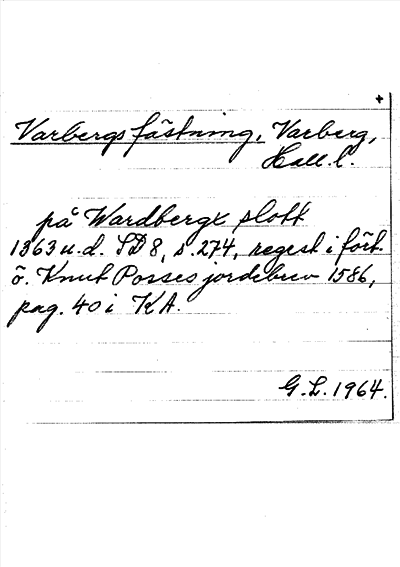 +
Varbergs fästning, Varberg,
Hall. l.
på Wardbergx slott
1363 u.d. SD 8, s. 274, regest i fört.
ö. Knut Posses jordebrev 1586,
pag. 40 i KA.
G.L. 1964.